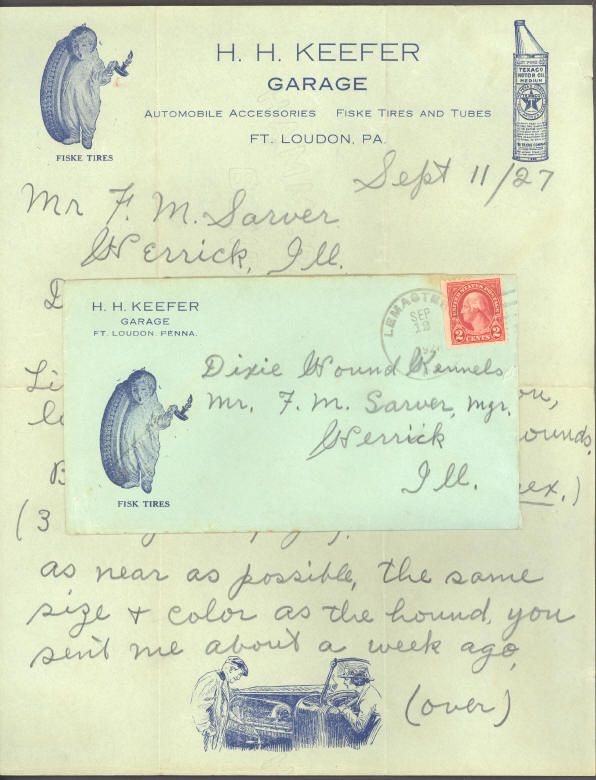 H. H. KEEFER
GARAGE
AUTOMOBILE ACCESSORIES FISKE TIRES AND TUBES
FT. LOUDON, PA.
FISKE TIRES
TEXACO
MOTOR OIL
MEDIUM
Sept 11/27
Mr F. M. Sarver
Herrick, Ill.
D
H. H. KEEFER
GARAGE
FT. LOUDON, PENNA.
FISK TIRES
LEMASTE
SEP
UNITED STATES POSTAGE
2 CENTS 2
Dixie Hound Kennels
Mr. F. M. Sarver, Mgr.
Herrick
Ill.
Li
ounds,
B ex.)
(3
as near as possible, the same
size & color as the hound, you
sent me about a week ago,
(over)